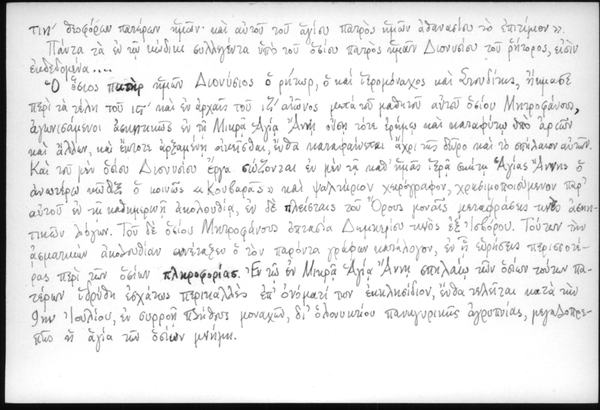 τιν' θεοφόρων πατέρων ἡμῶν· καὶ αὐτοῦ τοῦ ἁγίου πατρὸς ἡμῶν ἀθανασίου τὸ ἐπιτίμιον».
Πάντα τὰ ἐν τῷ κώδικι συλλεγέντα ὑπὸ τοῦ ὁσίου πατρὸς ἡμῶν Διονυσίου τοῦ ῥήτορος, εἰσὶν
ἐκδεδομένα....
Ὁ ὅσιος πατὴρ ἡμῶν Διονύσιος ὁ ῥήτωρ, ὁ καὶ ἱερομόναχος καὶ Στουδίτης, ἤκμασε
περὶ τὰ τέλη τοῦ ιστ' καὶ ἐν ἀρχαῖς τοῦ ιζ' αἰῶνος μετὰ τοῦ μαθητοῦ αὐτοῦ ὁσίου Μητροφάνους,
ἀγωνισάμενοι ἀσκητικῶς ἐν τῇ Μικρᾷ Ἁγίᾳ Ἄννῃ οὔσῃ τότε ἐρήμῳ καὶ καταφύτῳ ὑπὸ ἀριῶν
καὶ ἄλλων, καὶ ἔκτοτε ἀρξαμένη οἰκεῖσθαι, ἔνθα καταφαίνεται ἄχρι τῆς δεῦρο καὶ τὸ σπήλαιον αὐτῶν.
Καὶ τοῦ μὲν ὁσίου Διονυσίου ἔργα σώζονται ἐν μὲν τῇ καθ' ἡμᾶς Ἱερᾷ σκήτῃ Ἁγίας Ἄννης ὁ
ἀνωτέρω κῶδιξ ὁ κοινῶς «Κουβαρᾶς» καὶ ψαλτήριον χειρόγραφον, χρησιμοποιούμενον παρ'
αὐτοῦ ἐν τῇ καθημερινῇ ἀκολουθίᾳ, ἐν δὲ πλείσταις τοῦ Ὄρους μοναῖς μεταφράσεις τινὲς ἀσκη-
τικῶν λόγων. Τοῦ δὲ ὁσίου Μητροφάνους ὀπτασία Δημητρίου τινὸς ἐξ Ἰσβόρου. Τούτων τὴν
ἀσματικὴν ἀκολουθίαν συνέταξεν ὁ τὸν παρόντα γράφων κατάλογον, ἐν ᾗ εὑρήσεις περισσοτέ-
ρας περὶ τῶν ὁσίων πληροφορίας. Ἐν τῷ ἐν Μικρᾷ Ἁγίᾳ Ἄννῃ σπηλαίῳ τῶν ὁσίων τούτων πα-
τέρων ἱδρύθη ἐσχάτως περικαλλὲς ἐπ' ὀνόματί των ἐκκλησίδιον, ἔνθα τελεῖται κατὰ τὴν
9ην Ἰουλίου, ἐν συρροῇ πλήθους μοναχῶν, δι' ὁλονυκτίου πανηγυρικῆς ἀγρυπνίας, μεγαλοπρε-
πῶς ἡ ἁγία τῶν ὁσίων μνήμη.